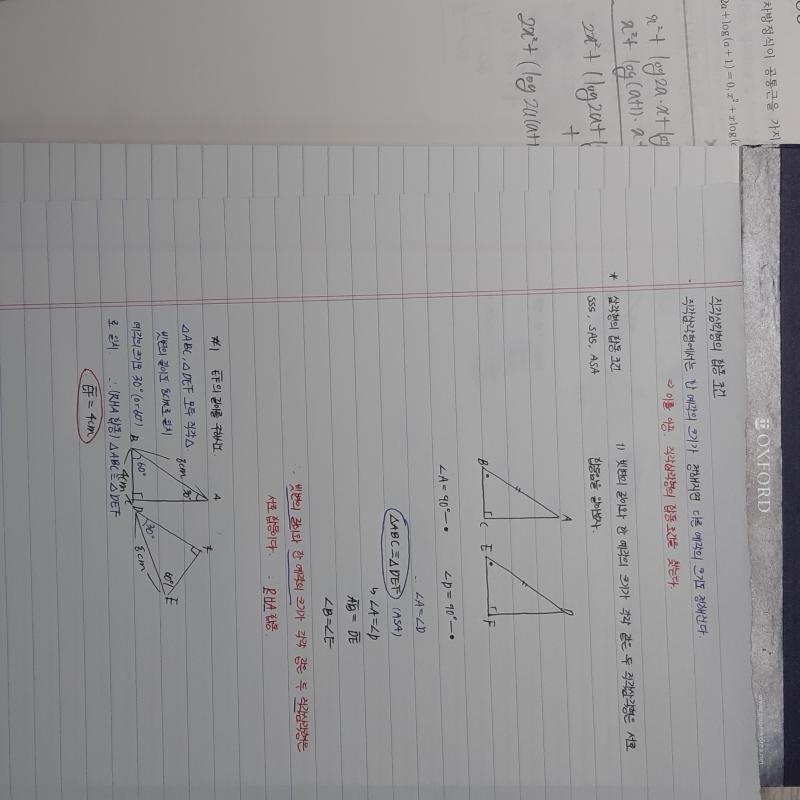 차방정식이 공통근을 가지
2a+log(a+1)=0, x²+xlog(
x²+ log2a·x+ log
x²+ log(a+1)·x
2x²+ (log2a+
+
2x²+ (log 2a(a+1
OXFORD
직각삼각형의 합동 조건
· 직각삼각형에서는 한 예각의 크기가 정해지면 다른 예각의 크기도 정해진다.
⇒ 이를 이용, 직각삼각형의 합동조건을 찾는다.
* 삼각형의 합동 조건
SSS, SAS, ASA
1) 빗변의 길이와 한 예각의 크기가 각각 같은 두 직각삼각형은 서로
합동임을 밝혀보자.
A
B
C
D
E
F
∠A = 90° - •
∠D = 90° - •
∴ ∠A = ∠D
△ABC ≡ △DEF (ASA)
↳ ∠A = ∠D
AB = DE
∠B = ∠E
∴ 빗변의 길이와 한 예각의 크기가 각각 같은 두 직각삼각형은
서로 합동이다. : RHA 합동
#1 EF의 길이를 구하시오.
△ABC, △DEF 모두 직각△
빗변의 길이도 8cm로 일치
예각의 크기도 30° (or 60°)
로 일치 ∴ (RHA 합동) △ABC ≡ △DEF
∴ EF = 4cm
A
30°
8cm
B
60°
4cm
C
D
30°
8cm
60°
E
F